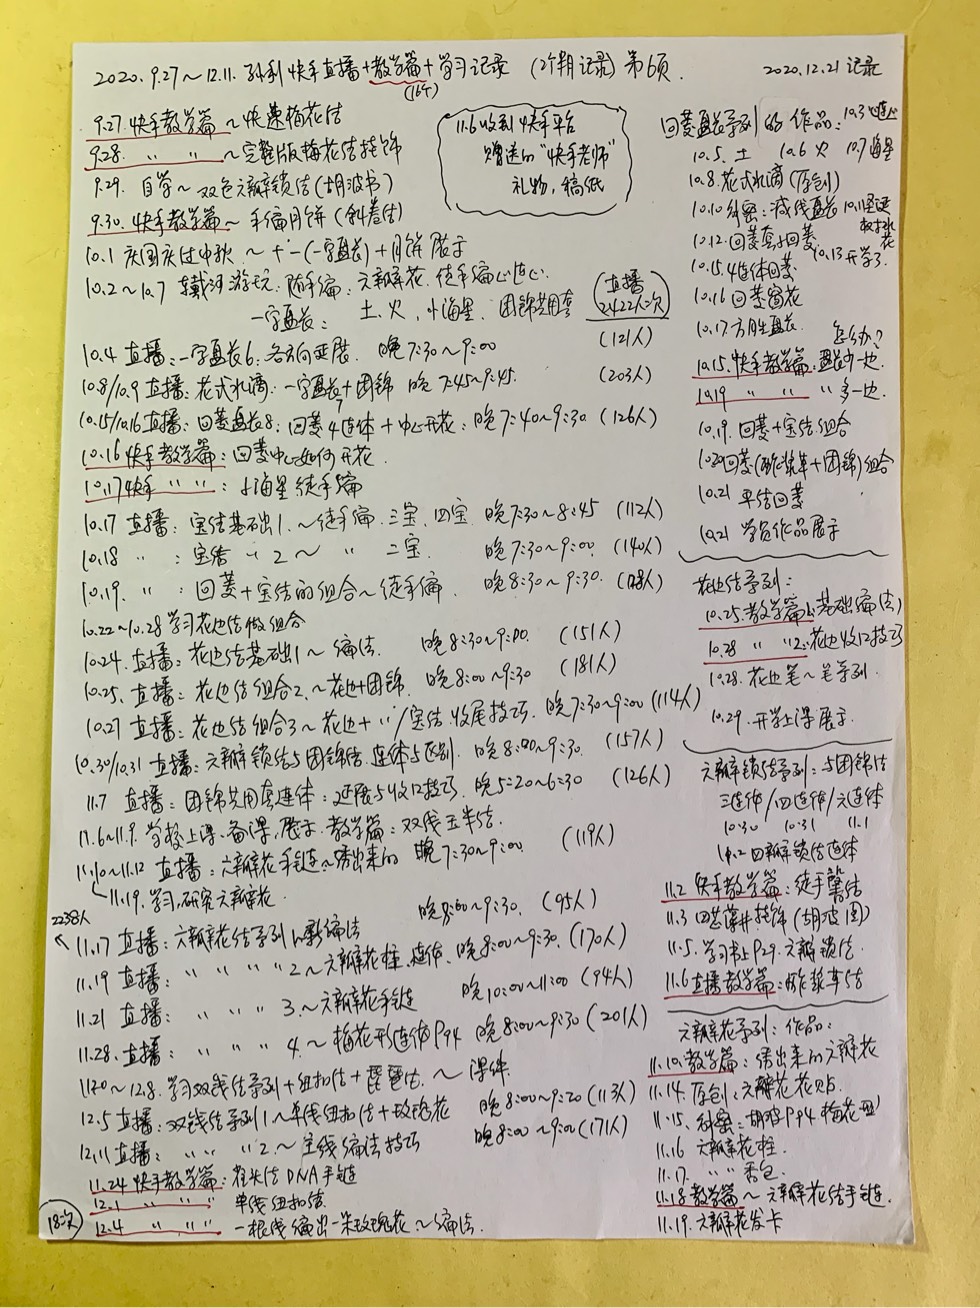 2020.9.27～12.11. 快手直播+教学篇+学习记录 (2个月记录) 第6页.
(16个)
2020.12.21记录
9.27.快手教学篇～快速梅花结
9.28. 〃 〃 ～完整版梅花结挂饰
9.29. 自学～双色六瓣锁结(胡波书)
9.30.快手教学篇～手编月饼(斜卷结)
10.1 庆国庆过中秋 ～十一(一字盘长)+月饼展示
10.2～10.7 游玩.随手编:六瓣花.徒手编心连心.
一字盘长: 土、火、小海星、团锦共用套
直播
2422人次
10.4 直播:一字盘长6:各方向延展. 晚7:30～9:00 (121人)
10.8/10.9 直播:花式水滴:一字盘长+团锦 晚7:45～9:45. (203人)
10.15/10.16直播:回菱盘长8:回菱4连体+中心开花:晚7:40～9:30 (126人)
10.16快手教学篇:回菱中心如何开花.
10.17快手 〃 〃 :小海星徒手编
10.17 直播:宝结基础1.～徒手编.三宝.四宝 晚7:30～8:45 (112人)
10.18 〃 :宝结 〃 2～ 〃 二宝. 晚7:30～9:00. (140人)
10.19. 〃 :回菱+宝结的组合～徒手编. 晚8:30～9:30.
10.22～10.28学习花边结做组合
10.24.直播:花边结基础1～编法. 晚8:30～9:00. (151人)
10.25.直播:花边结组合2.～花边+团锦. 晚8:00～9:30 (181人)
10.27 直播:花边结组合3～花边+〃/宝结.收尾技巧.晚7:30～9:00(114人)
10.30/10.31 直播:六瓣锁结与团锦结.连体与区别.晚8:00～9:30. (157人)
11.7 直播:团锦共用套连体:延展与收口技巧.晚5:20～6:30 (126人)
11.6～11.9.学校上课、备课、展示.教学篇:双线五半结.
11.10～11.12 直播:六瓣花手链～绣出来的 晚7:30～9:00 (119人)
11.19.学习,研究六瓣花.
2238人
11.17 直播:六瓣花结系列1～新编法 晚8:00～9:30. (95人)
11.19 直播: 〃 〃 〃 〃 2～六瓣花柱.连体.晚8:00～9:30.(170人)
11.21 直播: 〃 〃 〃 3.～六瓣花手链 晚10:00～11:00 (94人)
11.28.直播: 〃 〃 〃 4.～梅花形连体P94 晚8:00～9:30(201人)
11.30～12.8.学习双钱结系列+纽扣结+琵琶结.～课件
12.5直播:双钱结系列1～单线纽扣结+玫瑰花 晚8:00～9:20(113人)
12.11直播: 〃 〃 〃 2.～主线编法技巧 晚8:00～9:00(171人)
11.24快手教学篇:雀头结DNA手链
12.1 〃 〃 〃 单线纽扣结
12.4 〃 〃 〃 一根线编出一朵玫瑰花～编法.
18次
11.6收到快手平台
赠送的"快手老师"
礼物,稿纸
回菱盘长系列的作品:10.3心连心
10.5.土 10.6火 10.7海星
10.8.花式水滴(原创)
10.10.科密:减线盘长
10.12.回菱套小回菱.10.13开学了.
10.15.4连体回菱
10.16回菱窗花
10.17方胜盘长. 怎么办?
10.15.快手教学篇:盘长少一边.
10.19 〃 〃 〃多一边.
10.19.回菱+宝结组合
10.20回菱(酢浆草+团锦)组合
10.21 平结回菱
10.21 学员作品展示
花边结系列:
10.25.教学篇1:基础编法)
10.28 〃 〃2:花边收口技巧
10.28.花边笔～笔系列.
10.29.开学上课展示.
六瓣锁结系列:与团锦结
三连体/四连体/六连体
10.30 10.31 11.1
11.2四瓣锁结连体
11.2 快手教学篇:徒手磬结
11.3 四瓣藻井挂饰(胡波图)
11.5.学习书上P29.六瓣锁结.
11.6直播教学篇:酢浆草结
六瓣花系列:作品:
11.10.教学篇:绣出来的六瓣花
11.14.原创:六瓣花花贴.
11.15.科密:胡波P94梅花型
11.16 六瓣花柱.
11.17. 〃 〃 香包.
11.18教学篇～六瓣花结手链.
11.19.六瓣花发卡